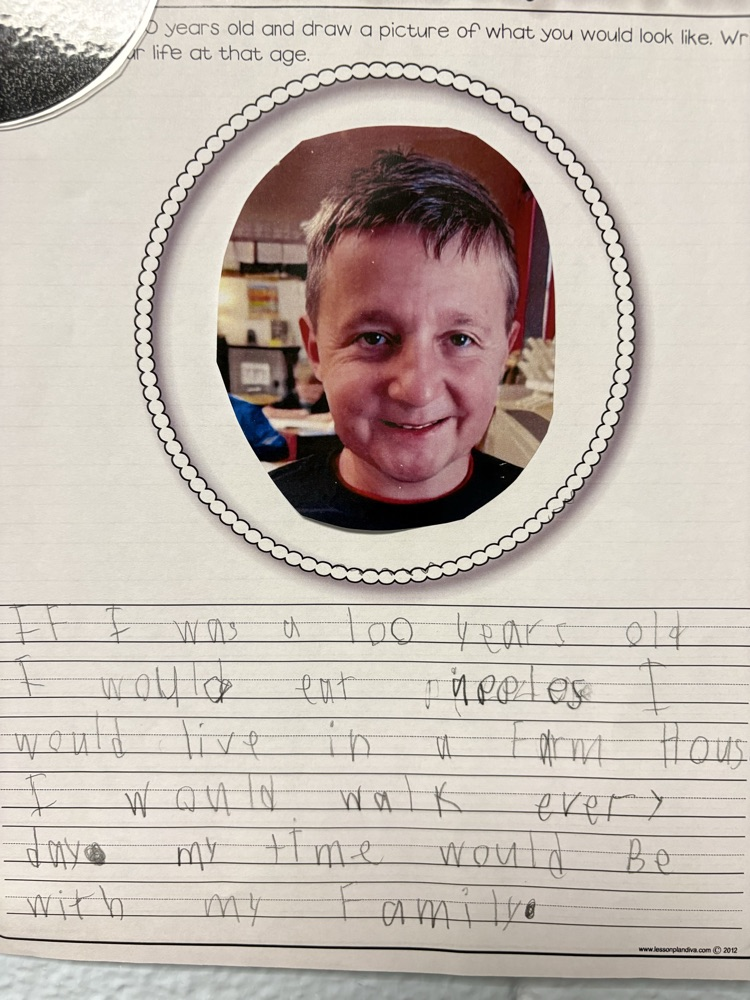 0 years old and draw a picture of what you would look like. Wr
ur life at that age.
If I was a 100 years old
I would eat
I
would live in a Farm Hous
I would walk every
day. my time would Be
with my Family.
www.lessonplandiva.com © 2012